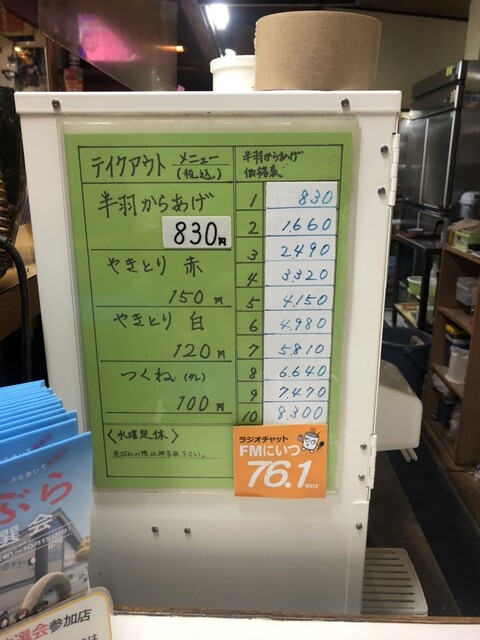 テイクアウト メニュー
(税込)
半羽からあげ
830円
やきとり 赤
150円
やきとり 白
120円
つくね(タレ)
100円
〈水曜定休〉
半羽からあげ
価格表
1 830
2 1.660
3 2.490
4 3.320
5 4.150
6 4.980
7 5.810
8 6.640
9 7.470
10 8.300
ラジオチャット
FMにいつ
76.1
MHz
ぶら
選会
選会参加店